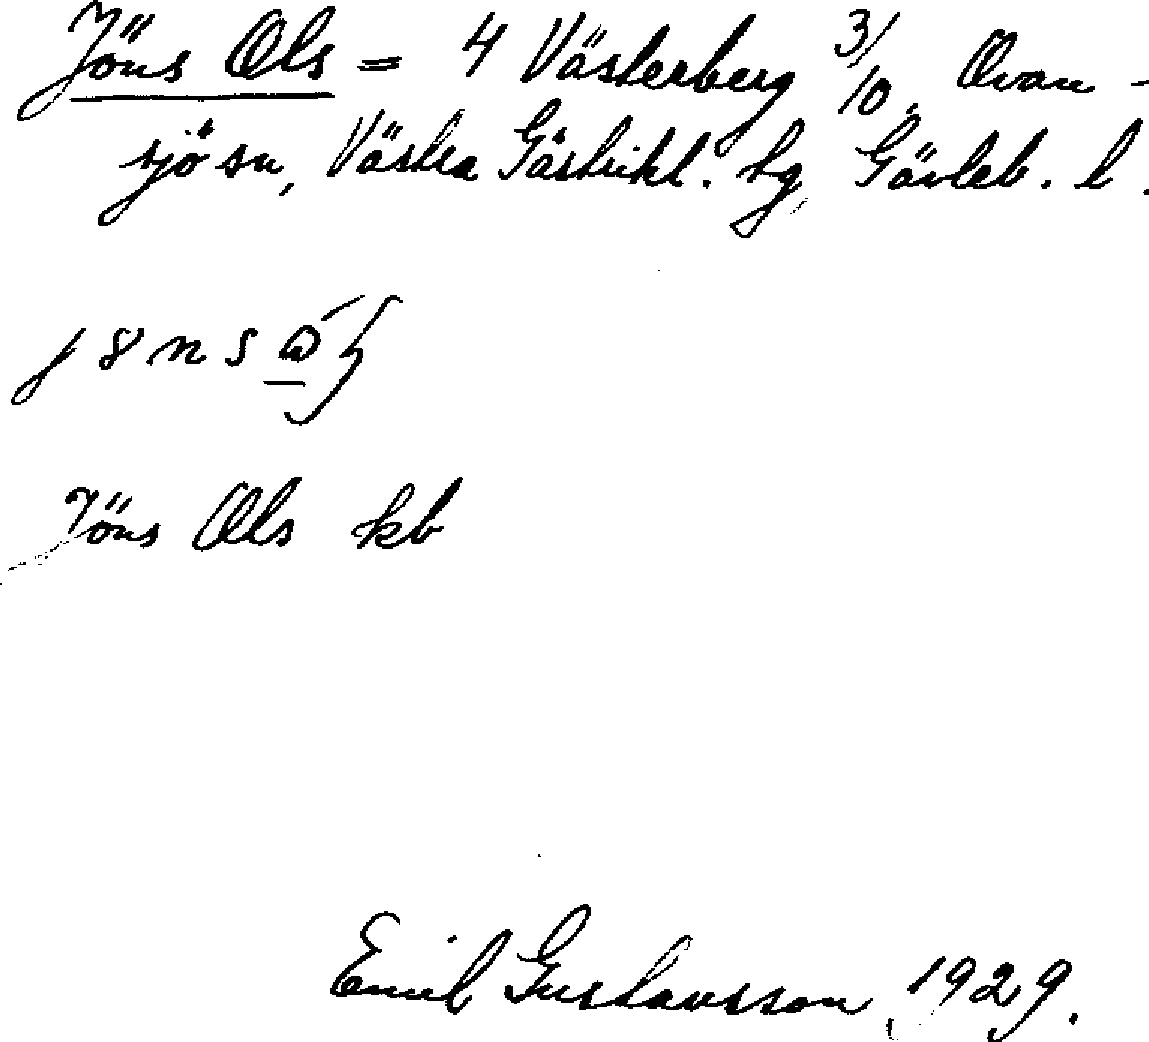 Jöns Ols = 4 Västerberg 3/10, Ovan-
sjö sn, Västra Gästrikl. hg, Gävleb. l.
Jöns Ols kb
Emil Gustavsson, 1929.